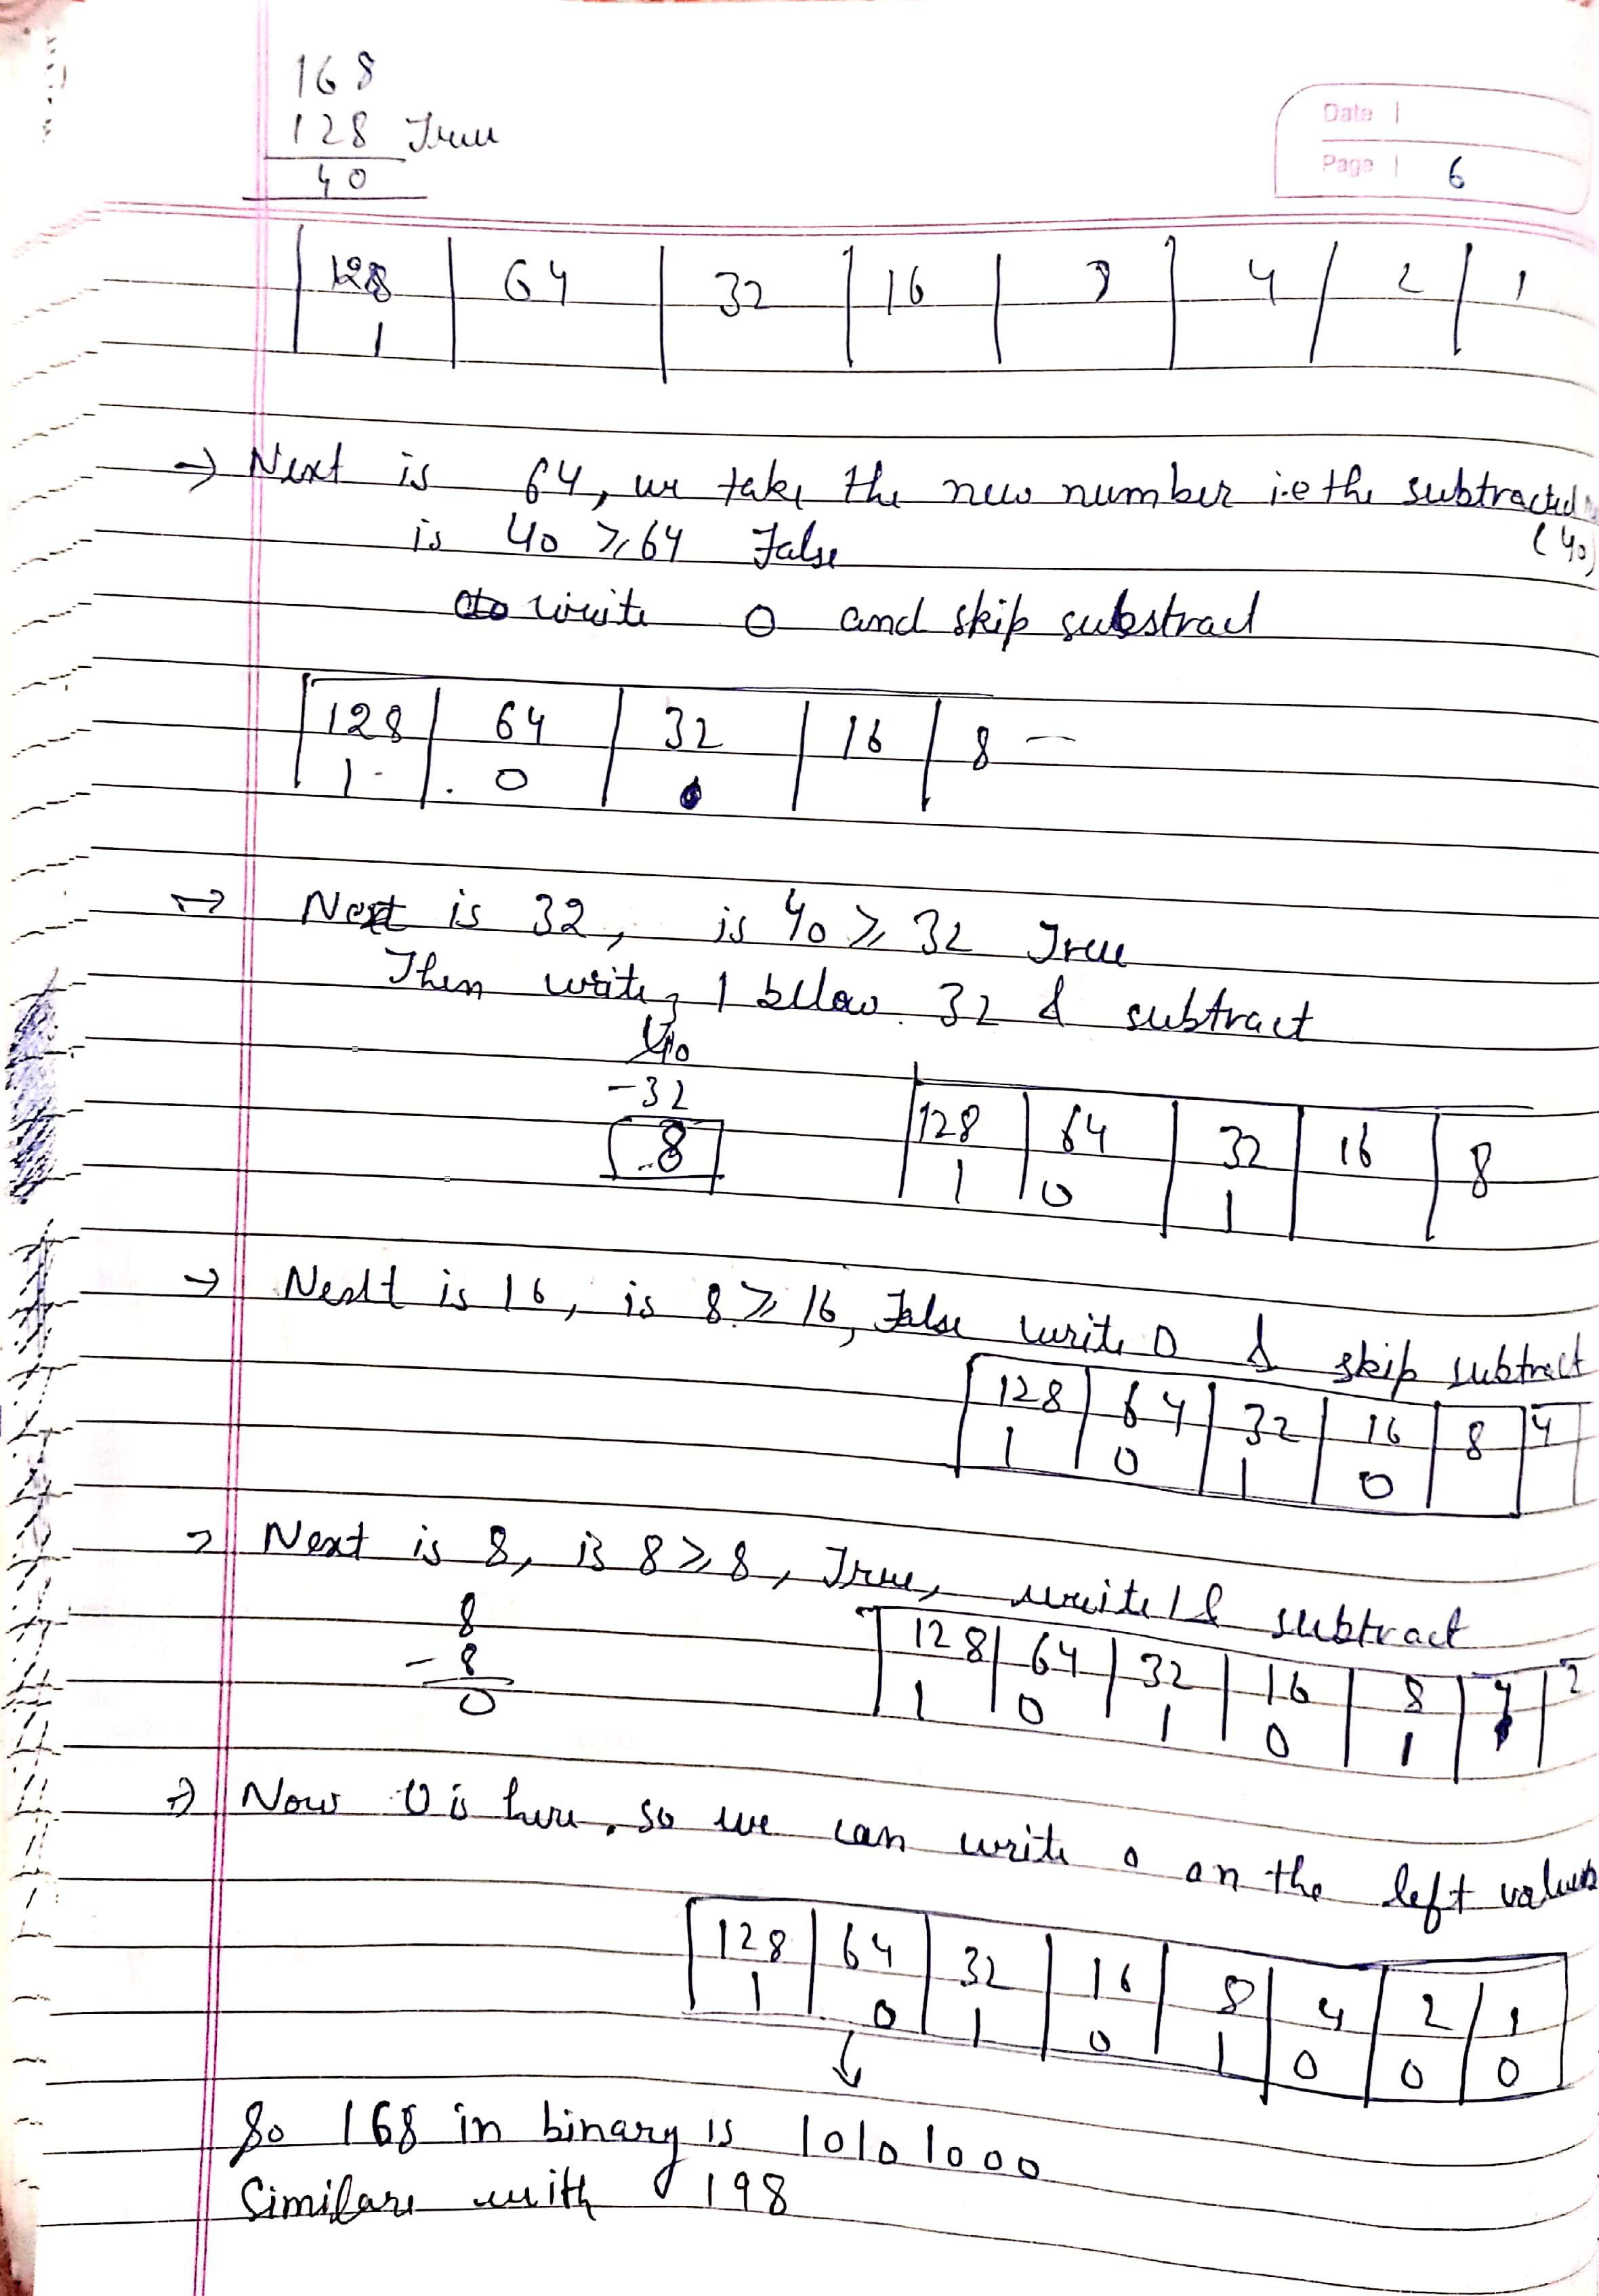 168
128 True
40
Date
Page 6
128 64 32 16 8 4 2 1
1
→ Next is 64, we take the new number i.e the subtracted
(40)
is 40 ⩾ 64 False
write 0 and skip substract
128 64 32 16 8 —
1 0
→ Next is 32, is 40 ⩾ 32 True
Then write 1 below 32 & subtract
40
-32
8
128 64 32 16 8
1 0 1
→ Next is 16, is 8 ⩾ 16, False write 0 & skip subtract
128 64 32 16 8 4
1 0 1 0
→ Next is 8, is 8 ⩾ 8, True, write 1 & subtract
8
- 8
0
128 64 32 16 8 4 2
1 0 1 0 1
→ Now 0 is here, so we can write 0 on the left values
128 64 32 16 8 4 2 1
1 0 1 0 1 0 0 0
↓
So 168 in binary is 10101000
Similare with 198